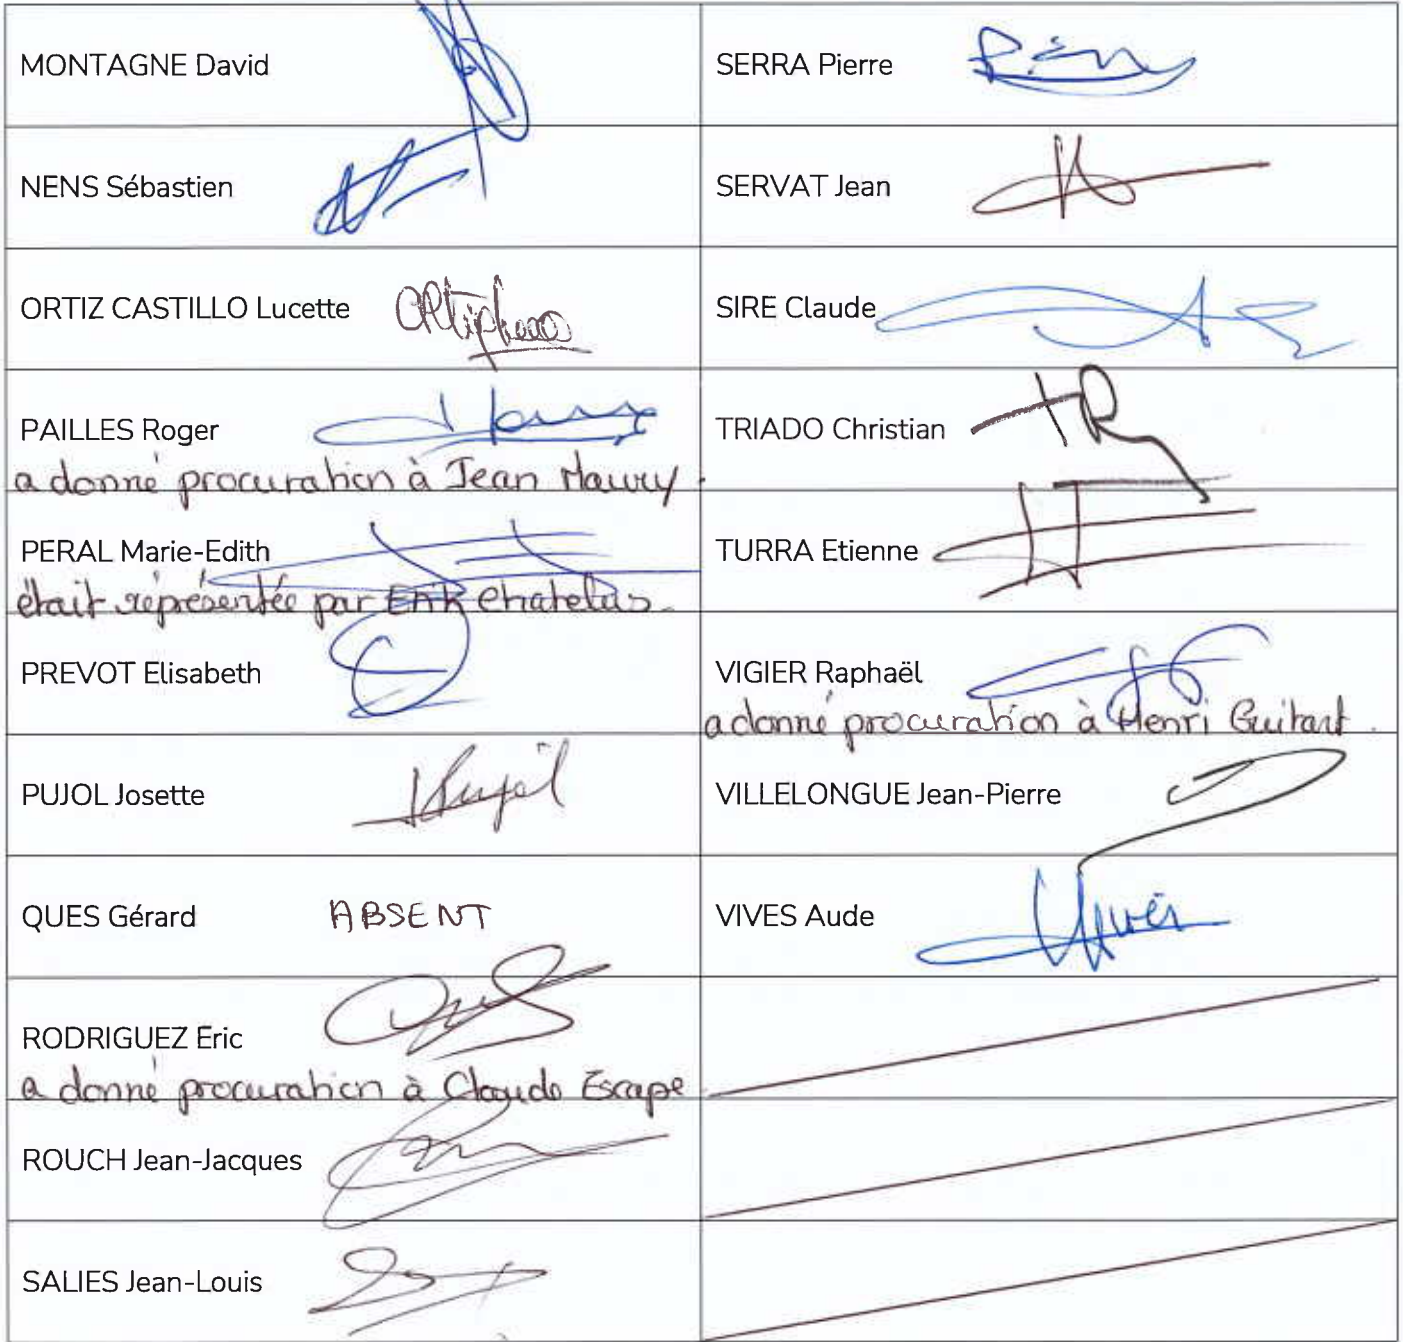 MONTAGNE David
SERRA Pierre
NENS Sébastien
SERVAT Jean
ORTIZ CASTILLO Lucette
SIRE Claude
PAILLES Roger
a donné procuration à Jean Maury.
TRIADO Christian
PERAL Marie-Edith
était représentée par Erik Chatelus.
TURRA Etienne
PREVOT Elisabeth
VIGIER Raphaël
a donné procuration à Henri Guitart.
PUJOL Josette
Pujol
VILLELONGUE Jean-Pierre
QUES Gérard
ABSENT
VIVES Aude
RODRIGUEZ Eric
a donné procuration à Claude Escape.
ROUCH Jean-Jacques
SALIES Jean-Louis